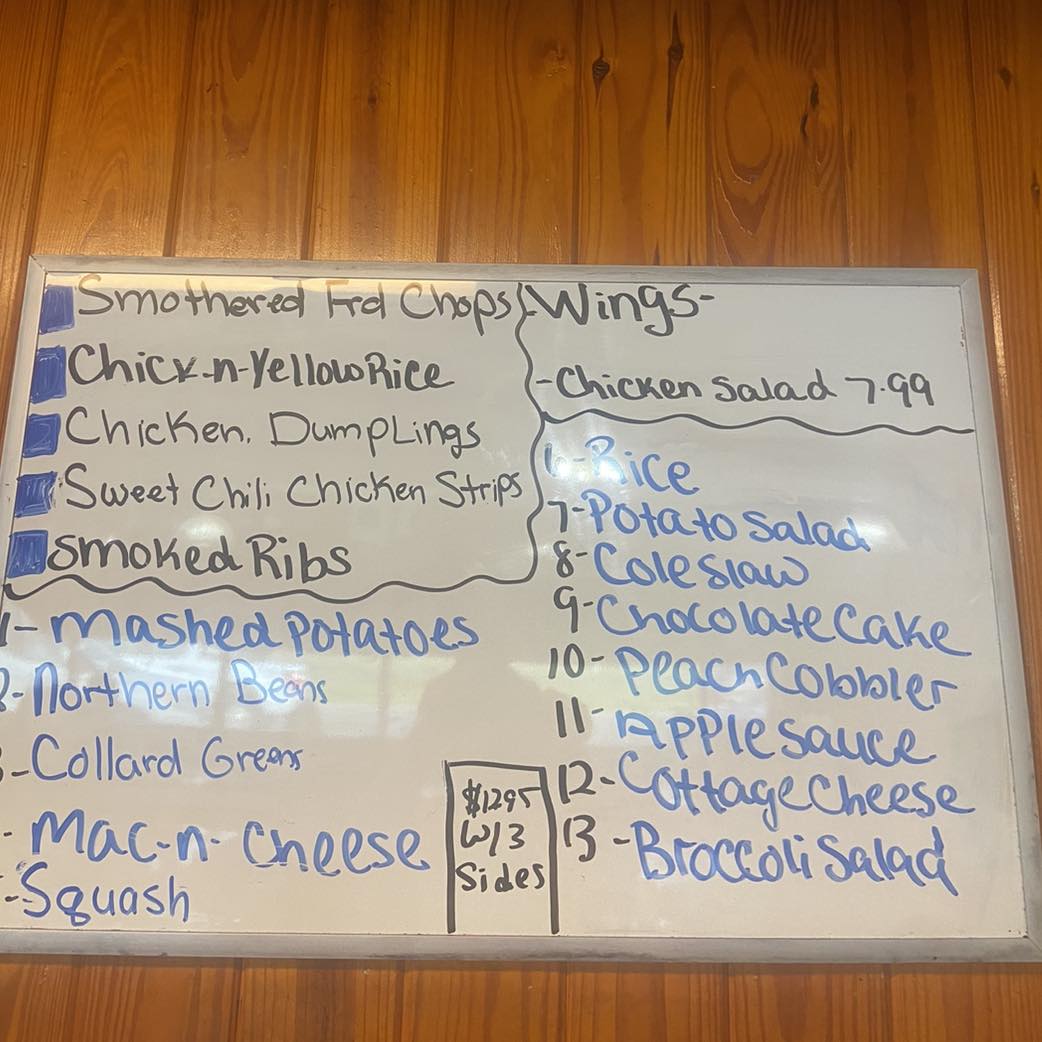 Smothered Frd Chops
Chick-n-Yellow Rice
Chicken. Dumplings
Sweet Chili Chicken Strips
Smoked Ribs
Wings-
-Chicken Salad 7.99
1-Mashed Potatoes
2-Northern Beans
3-Collard Greens
- Mac-n-Cheese
-Squash
$1295
W/3
Sides
6-Rice
7-Potato Salad
8-Coleslaw
9-Chocolate Cake
10-Peach Cobbler
11-Applesauce
12-Cottage Cheese
13-Broccoli Salad